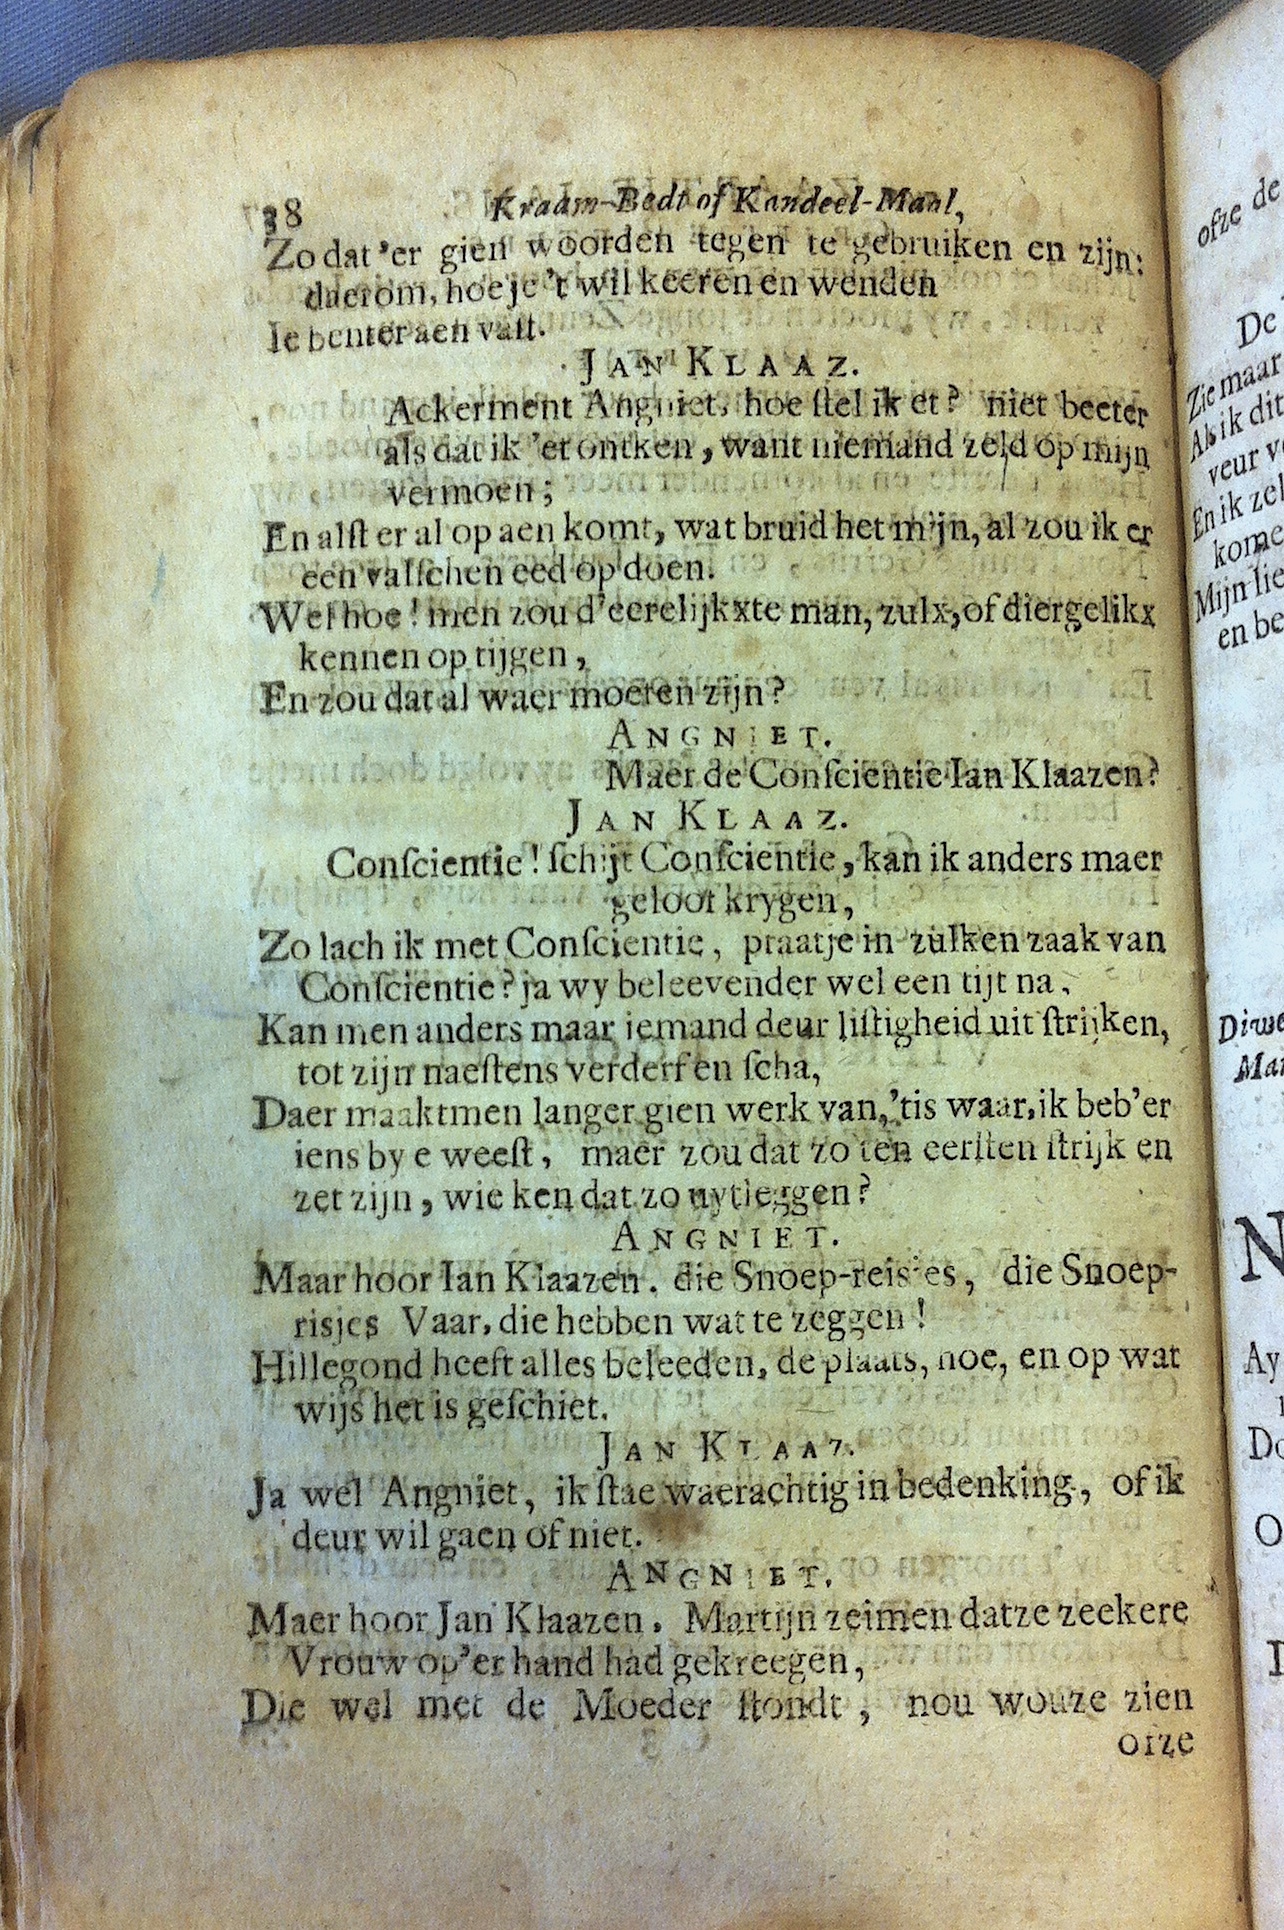 38 Kraam-Bedt of Kandeel-Maal,
Zo dat 'er gien woorden tegen te gebruiken en zijn:
daerom, hoe je 't wil keeren en wenden
Ie benter aen vast.
JAN KLAAZ.
Ackerment Angniet, hoe ſtel ik et? niet beeter
als dat ik 'et ontken, want niemand zeld op mijn
vermoen;
En alſt er al op aen komt, wat bruid het mijn, al zou ik er
een valſchen eed op doen.
Wel hoe! men zou d'eerelijkxte man, zulx, of diergelikx
kennen op tijgen,
En zou dat al waer moeten zijn?
ANGNIET.
Maer de Conſcientie Ian Klaazen?
JAN KLAAZ.
Conſcientie! ſchijt Conſcientie, kan ik anders maer
geloof krygen,
Zo lach ik met Conſcientie, praatje in zulken zaak van
Conſcientie? ja wy beleevender wel een tijt na,
Kan men anders maar iemand deur liſtigheid uit ſtrijken,
tot zijn naeſtens verderf en ſcha,
Daer maaktmen langer gien werk van, 'tis waar, ik beb'er
iens by e weeſt, maer zou dat zo ten eerſten ſtrijk en
zet zijn, wie ken dat zo uytleggen?
ANGNIET.
Maar hoor Ian Klaazen. die Snoep-reisjes, die Snoep-
risjes Vaar, die hebben wat te zeggen!
Hillegond heeft alles beleeden, de plaats, hoe, en op wat
wijs het is geſchiet.
JAN KLAAZ.
Ja wel Angniet, ik ſtae waerachtig in bedenking, of ik
deur wil gaen of niet.
ANGNIET.
Maer hoor Jan Klaazen. Martijn zeimen datze zeekere
Vrouw op'er hand had gekreegen,
Die wel met de Moeder ſtondt, nou wouze zien
ofze
ofze de
De
Zie maar
Als ik dit
veur
En ik zel
kome
Mijn lie
en be
Ay